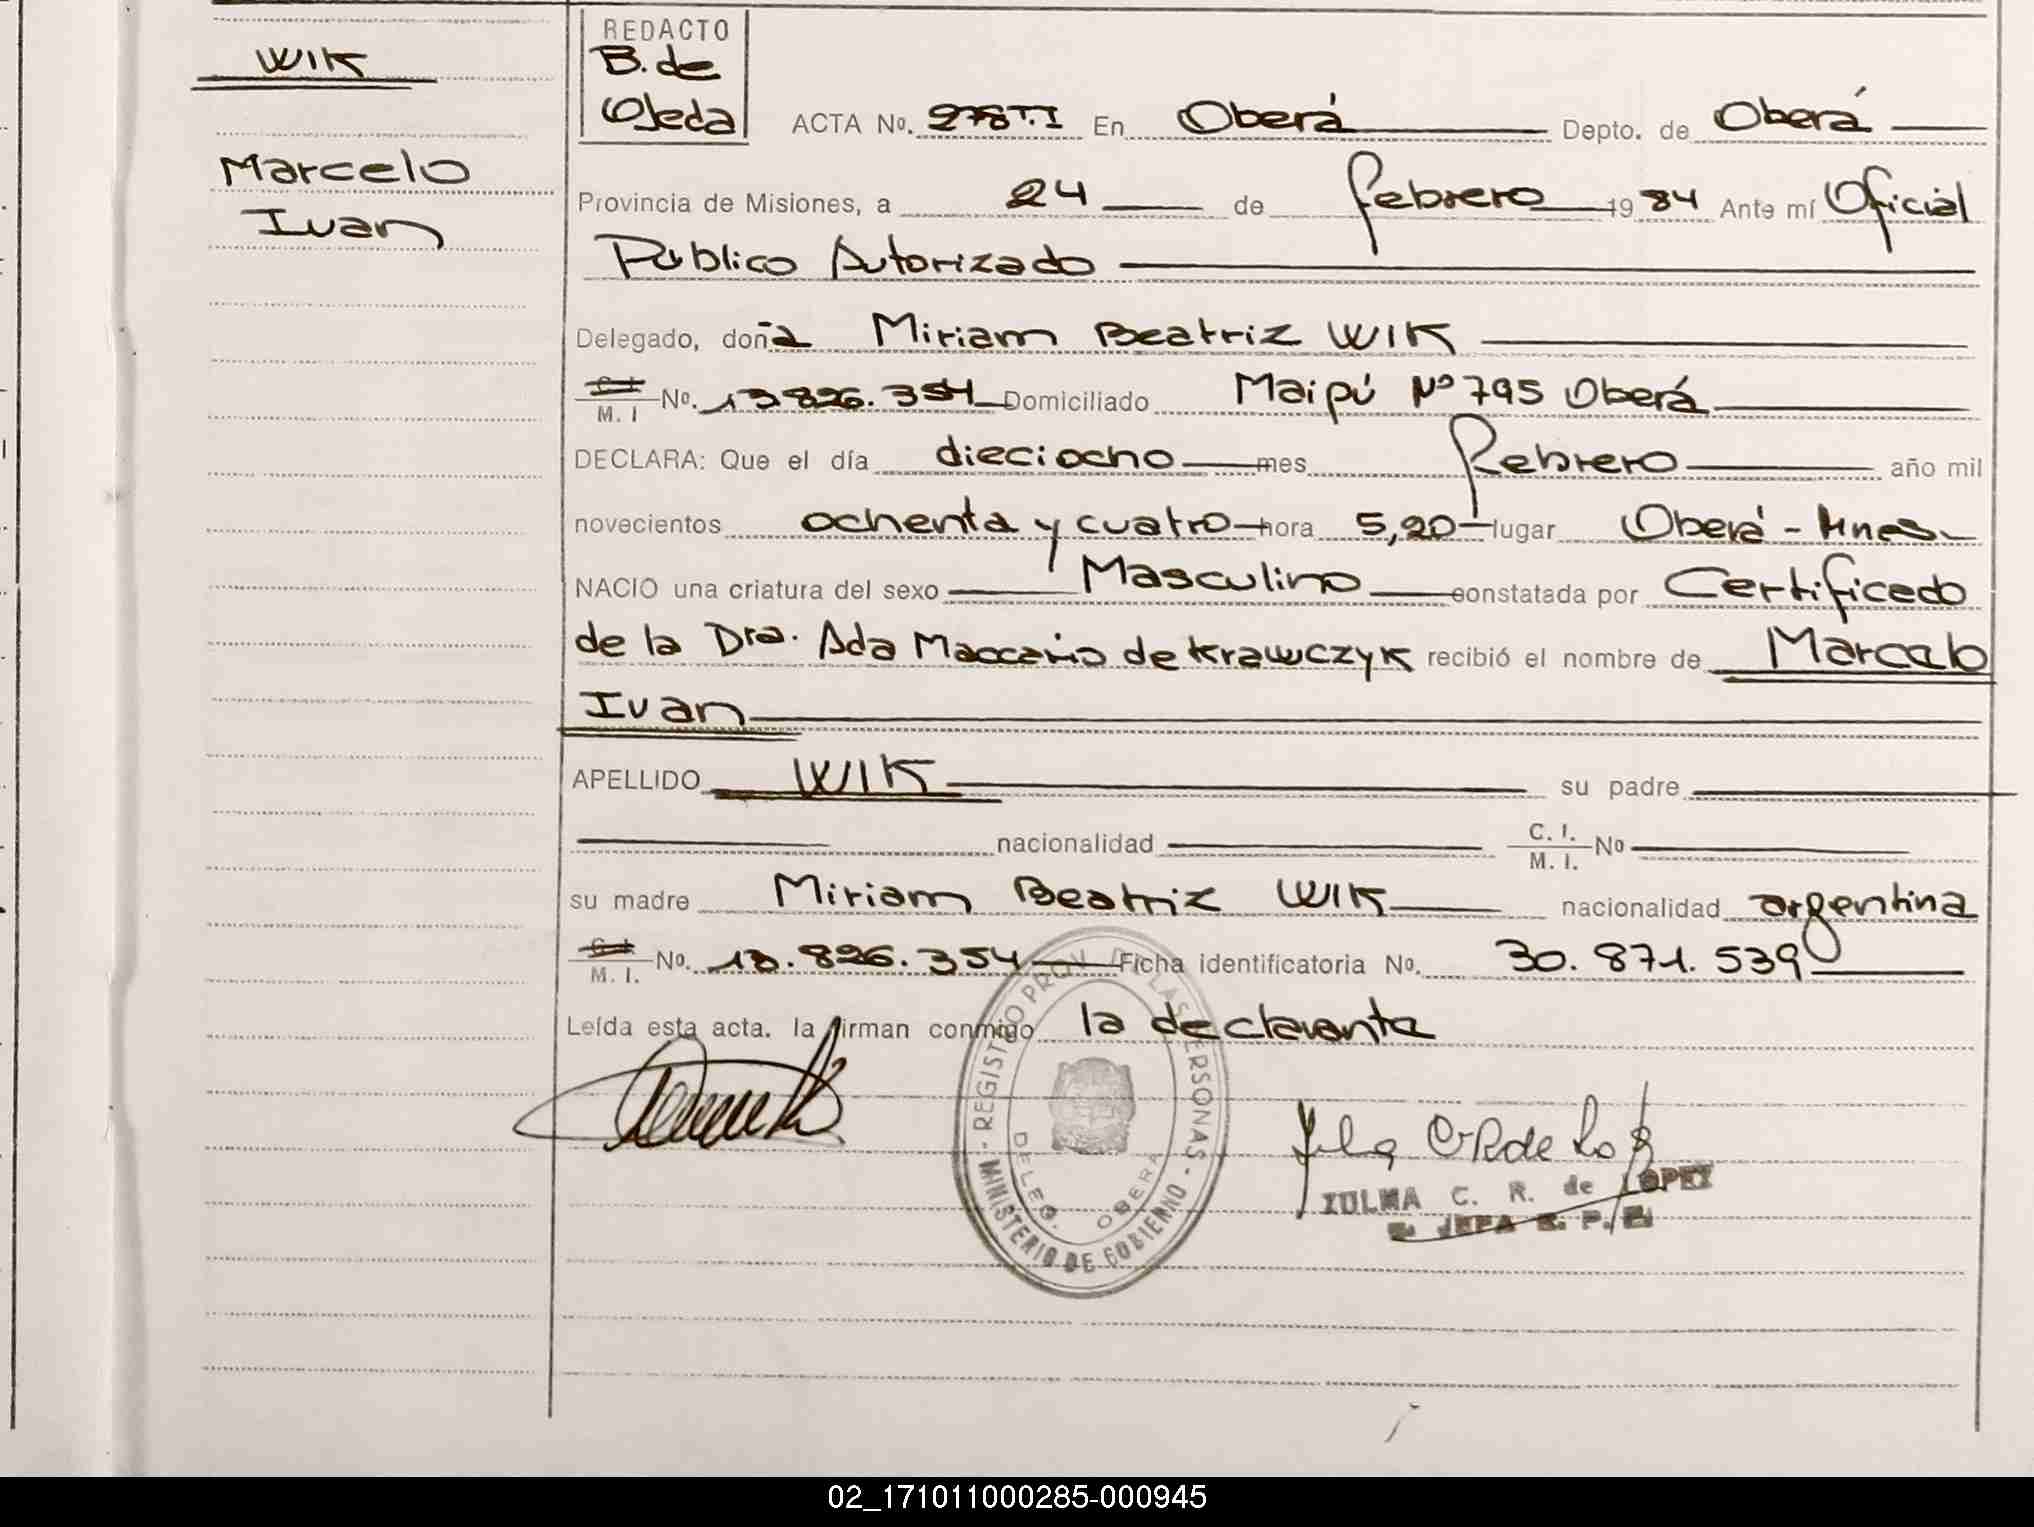 WIK
Marcelo
Ivan
REDACTO
B. de
Ojeda
ACTA No. 278 T.I En Oberá Depto. de Oberá
Provincia de Misiones, a 24 de febrero 1984 Ante mí Oficial
Público Autorizado
Delegado, doña Miriam Beatriz WIK
C. I. / M. I No. 13.826.354 Domiciliado Maipú Nº 795 Oberá
DECLARA: Que el día dieciocho mes febrero año mil
novecientos ochenta y cuatro hora 5,20 lugar Oberá - Mnes.
NACIO una criatura del sexo Masculino constatada por Certificado
de la Dra. Ada Maccario de Krawczyk recibió el nombre de Marcelo
Ivan
APELLIDO WIK su padre
nacionalidad C. I. / M. I. No
su madre Miriam Beatriz WIK nacionalidad argentina
C. I. / M. I. No. 13.826.354 Ficha identificatoria No. 30.871.539
Leída esta acta. la firman conmigo la declarante
REGISTRO PROV. DE LAS PERSONAS - MINISTERIO DE GOBIERNO -
DELEG. OBERA
ZULMA C. R. de LOPEZ
JEFA
02_171011000285-000945